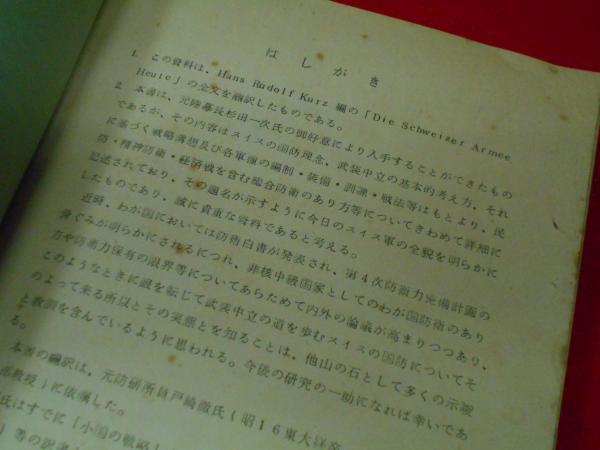 はしがき
1. この資料は、Hans Rudolf Kurz 編の「Die Schweizer Armee
Heute」の全文を翻訳したものである。
2. 本書は、元陸幕長杉田一次氏の御好意により入手することができたもの
であるが、その内容はスイスの国防理念、武装中立の基本的考え方、それ
に基づく戦略構想及び各軍種の編制・装備・訓練・戦法等はもとより、民
防・精神防衛・経済戦を含む総合防衛のあり方等についてきわめて詳細に
記述されており、その題名が示すように今日のスイス軍の全貌を明らかに
したものであり、誠に貴重な資料であると考える。
近時、わが国においては防衛白書が発表され、第4次防衛力整備計画の
骨ぐみが明らかにされるにつれ、非核中級国家としてのわが国防衛のあり
方や防衛力保有の限界等についてあらためて内外の論議が高まりつつあり、
このようなときに眼を転じて武装中立の道を歩むスイスの国防についてそ
のよって来る所以とその実態とを知ることは、他山の石として多くの示唆
と教訓を含んでいるように思われる。今後の研究の一助になれば幸いであ
る。
本書の翻訳は、元防研所員戸崎徹氏(昭16東大経卒
教授)に依嘱した。
氏はすでに「小国の戦略
等の訳者